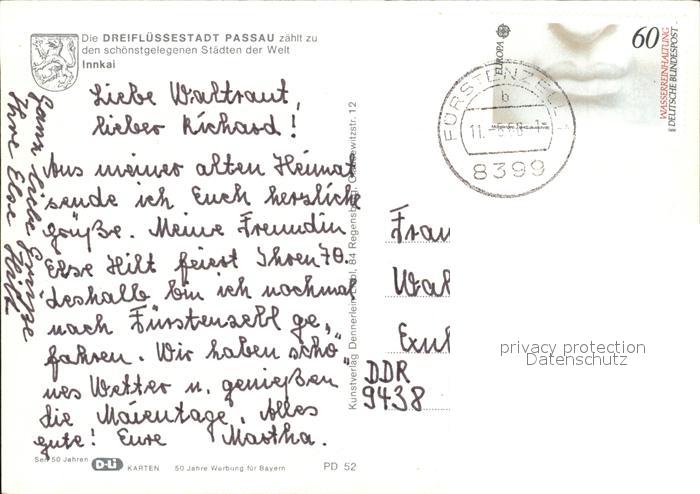 Die DREIFLÜSSESTADT PASSAU zählt zu
den schönstgelegenen Städten der Welt
Innkai
Liebe Waltraut,
lieber Richard!
Aus meiner alten Heimat
sende ich Euch herzliche
grüße. Meine Freundin
Else Hilt feiert Ihren 70.
deshalb bin ich nochmal
nach Fürstenzell ge„
fahren. Wir haben schö„
nes Wetter u. genießen
die Maientage. Alles
gute! Eure Martha.
Ganz liebe Grüße
Ihre Else Hilt
Seit 50 Jahren D-Li KARTEN 50 Jahre Werbung für Bayern PD 52
Kunstverlag Dennerlein-Liebl, 84 Regensburg, Clausewitzstr. 12
EUROPA
60
WASSERREINHALTUNG
DEUTSCHE BUNDESPOST
FÜRSTENZELL
b
8399
Frau
Wal
DDR
9438
privacy protection
Datenschutz